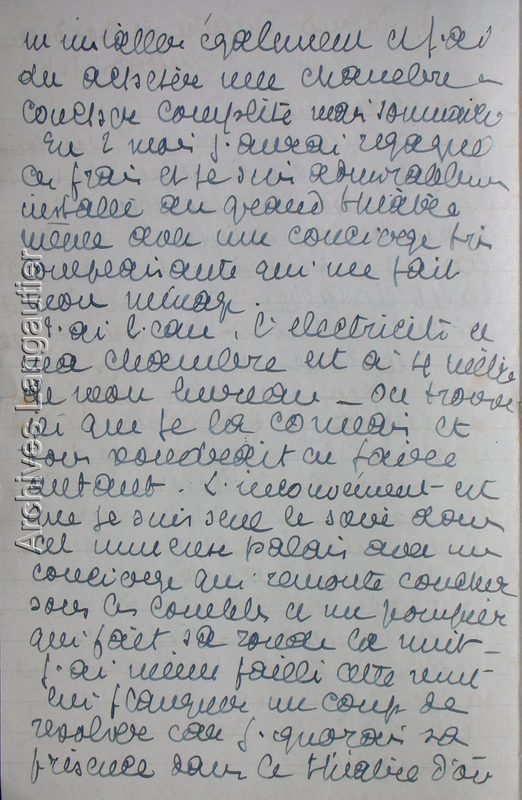 m'installer également et j'ai
du acheter une chambre à
coucher complète mais sommaire
En 2 mois j'aurai regagné
ces frais et je suis admirablement
installé au grand théâtre
même avec une concierge très
complaisante qui me fait
mon ménage.
J'ai l'eau, l'électricité et
ma chambre est à 4 mètres
de mon bureau — on trouve
ici que je la connais et
tous voudrait en faire
autant. L'inconvénient est
que je suis seul le soir dans
cet immense palais avec un
concierge qui remonte coucher
sous les combles et un pompier
qui fait sa ronde la nuit —
J'ai même failli cette nuit
lui flanquer un coup de
revolver car j'ignorais sa
présence dans le théâtre d'où
Archives Langautier